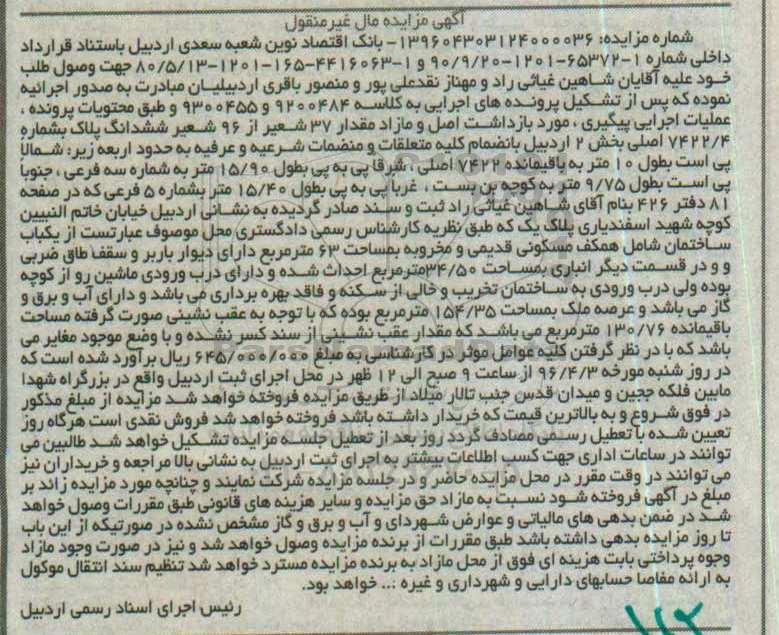 آگهی مزایده مال غیرمنقول
شماره مزایده: ۱۳۹۶۰۴۳۰۳۱۲۴۰۰۰۰۳۶- بانک اقتصاد نوین شعبه سعدی اردبیل باستناد قرارداد
داخلی شماره ۱-۶۵۳۷۲-۱۲۰۱-۹۰/۹/۲۰ و ۱-۴۴۱۶۰۶۳-۱۶۵-۱۲۰۱-۸۰/۵/۱۳ جهت وصول طلب
خود علیه آقایان شاهین غیاثی راد و مهناز نقدعلی پور و منصور باقری اردبیلیان مبادرت به صدور اجرائیه
نموده که پس از تشکیل پرونده های اجرایی به کلاسه ۹۲۰۰۴۸۴ و ۹۳۰۰۴۵۵ و طبق محتویات پرونده ،
عملیات اجرایی پیگیری ، مورد بازداشت اصل و مازاد مقدار ۳۷ شعیر از ۹۶ شعیر ششدانگ پلاک بشماره
۷۴۲۲/۴ اصلی بخش ۲ اردبیل بانضمام کلیه متعلقات و منضمات شرعیه و عرفیه به حدود اربعه زیر: شمالاً
پی است بطول ۱۰ متر به باقیمانده ۷۴۲۲ اصلی ، شرقاً پی به پی بطول ۱۵/۹۰ متر به شماره سه فرعی ، جنوباً
پی است بطول ۹/۷۵ متر به کوچه بن بست ، غرباً پی به پی بطول ۱۵/۴۰ متر بشماره ۵ فرعی که در صفحه
۸۱ دفتر ۴۲۶ بنام آقای شاهین غیاثی راد ثبت و سند صادر گردیده به نشانی اردبیل خیابان خاتم النبیین
کوچه شهید اسفندیاری پلاک یک که طبق نظریه کارشناس رسمی دادگستری محل موصوف عبارتست از یکباب
ساختمان شامل همکف مسکونی قدیمی و مخروبه بمساحت ۶۳ مترمربع دارای دیوار باربر و سقف طاق ضربی
و و در قسمت دیگر انباری بمساحت ۳۴/۵۰مترمربع احداث شده و دارای درب ورودی ماشین رو از کوچه
بوده ولی درب ورودی به ساختمان تخریب و خالی از سکنه و فاقد بهره برداری می باشد و دارای آب و برق و
گاز می باشد و عرصه ملک بمساحت ۱۵۴/۳۵ مترمربع بوده که با توجه به عقب نشینی صورت گرفته مساحت
باقیمانده ۱۳۰/۷۶ مترمربع می باشد که مقدار عقب نشینی از سند کسر نشده و با وضع موجود مغایر می
باشد که با در نظر گرفتن کلیه عوامل موثر در کارشناسی به مبلغ ۶۴۵/۰۰۰/۰۰۰ ریال برآورد شده است که
در روز شنبه مورخه ۹۶/۴/۳ از ساعت ۹ صبح الی ۱۲ ظهر در محل اجرای ثبت اردبیل واقع در بزرگراه شهدا
مابین فلکه ججین و میدان قدس جنب تالار میلاد از طریق مزایده فروخته خواهد شد مزایده از مبلغ مذکور
در فوق شروع و به بالاترین قیمت که خریدار داشته باشد فروخته خواهد شد فروش نقدی است هرگاه روز
تعیین شده با تعطیل رسمی مصادف گردد روز بعد از تعطیل جلسه مزایده تشکیل خواهد شد طالبین می
توانند در ساعات اداری جهت کسب اطلاعات بیشتر به اجرای ثبت اردبیل به نشانی بالا مراجعه و خریداران نیز
می توانند در وقت مقرر در محل مزایده حاضر و در جلسه مزایده شرکت نمایند و چنانچه مورد مزایده زائد بر
مبلغ در آگهی فروخته شود نسبت به مازاد حق مزایده و سایر هزینه های قانونی طبق مقررات وصول خواهد
شد در ضمن بدهی های مالیاتی و عوارض شهردای و آب و برق و گاز مشخص نشده در صورتیکه از این باب
تا روز مزایده بدهی داشته باشد طبق مقررات از برنده مزایده وصول خواهد شد و نیز در صورت وجود مازاد
وجوه پرداختی بابت هزینه ای فوق از محل مازاد به برنده مزایده مسترد خواهد شد تنظیم سند انتقال موکول
به ارائه مفاصا حسابهای دارایی و شهرداری و غیره ... خواهد بود.
رئیس اجرای اسناد رسمی اردبیل